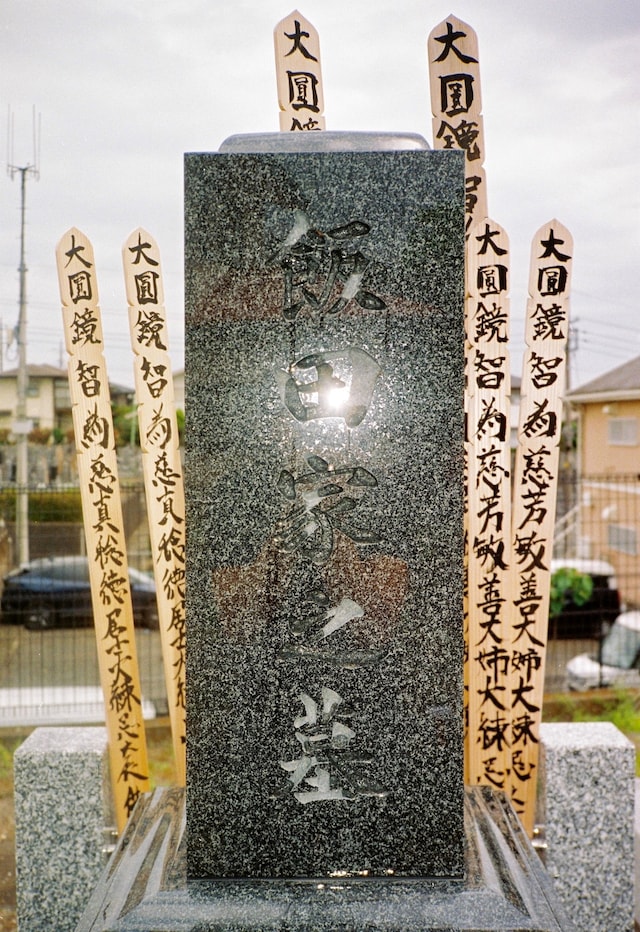 飯田家之墓
大圓鏡
大圓鏡智
大圓鏡智為慈真稔徳居士練忌
大圓鏡智為慈真稔徳居士
大圓鏡智為慈芳敏善大姉大練忌
大圓鏡智為慈芳敏善大姉大練忌